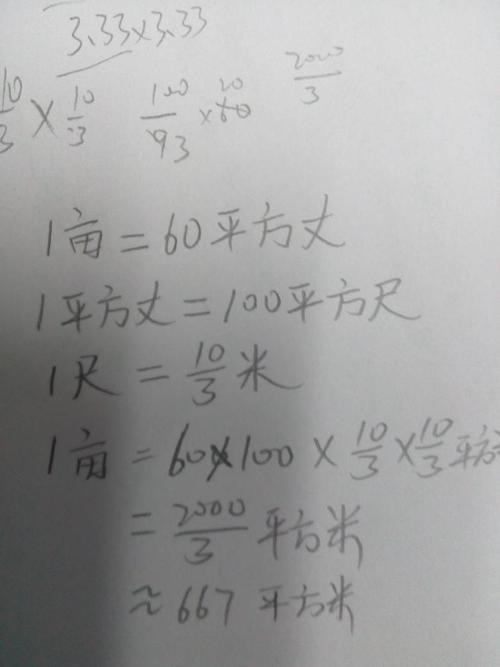 3.33×3.33
10/3 × 10/3 100/93 × 60 20 2000/3
1亩=60平方丈
1平方丈=100平方尺
1尺=10/3米
1亩=60×100×10/3×10/3平方
=2000/3平方米
≈667平方米